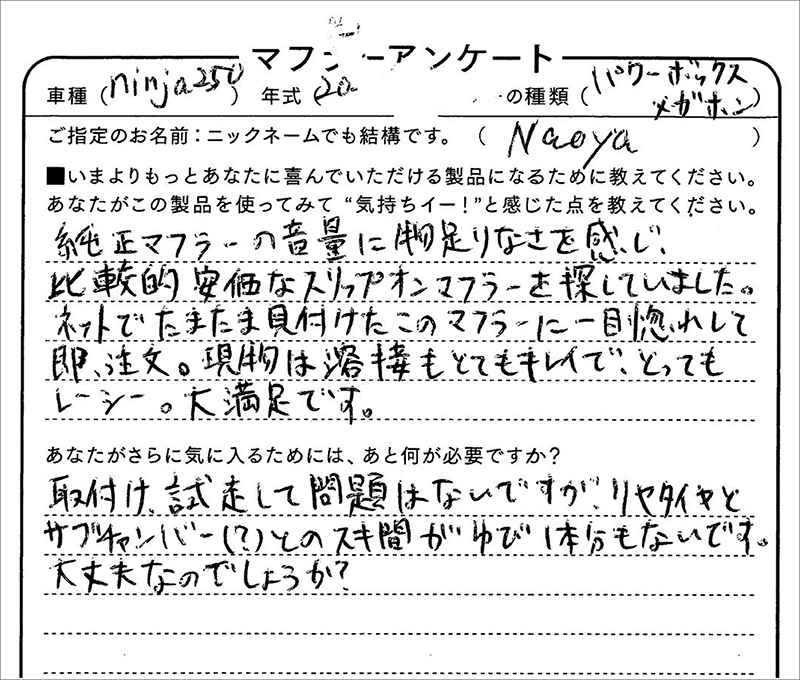 マフ ーアンケート
車種 (ninja250) 年式 (20 の種類 (パワーボックス
メガホン)
ご指定のお名前：ニックネームでも結構です。 ( Naoya )
■いまよりもっとあなたに喜んでいただける製品になるために教えてください。
あなたがこの製品を使ってみて “気持ちイー！”と感じた点を教えてください。
純正マフラーの音量に物足りなさを感じ、
比較的安価なスリップオンマフラーを探していました。
ネットでたまたま見付けたこのマフラーに一目惚れして
即、注文。現物は溶接もとてもキレイで、とっても
レーシー。大満足です。
あなたがさらに気に入るためには、あと何が必要ですか？
取付け、試走して問題はないですが、リヤタイヤと
サブチャンバー(？)とのスキ間がゆび1本分もないです。
大丈夫なのでしょうか？